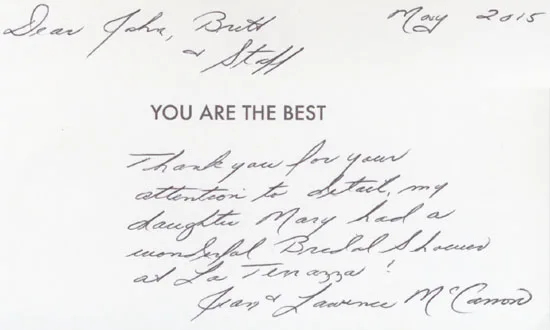 Dear John, Britt May 2015
& Staff
YOU ARE THE BEST
Thank you for your
attention to detail, my
daughter Mary had a
wonderful Bridal Shower
at La Terrazza!
Jean & Lawrence McCarron